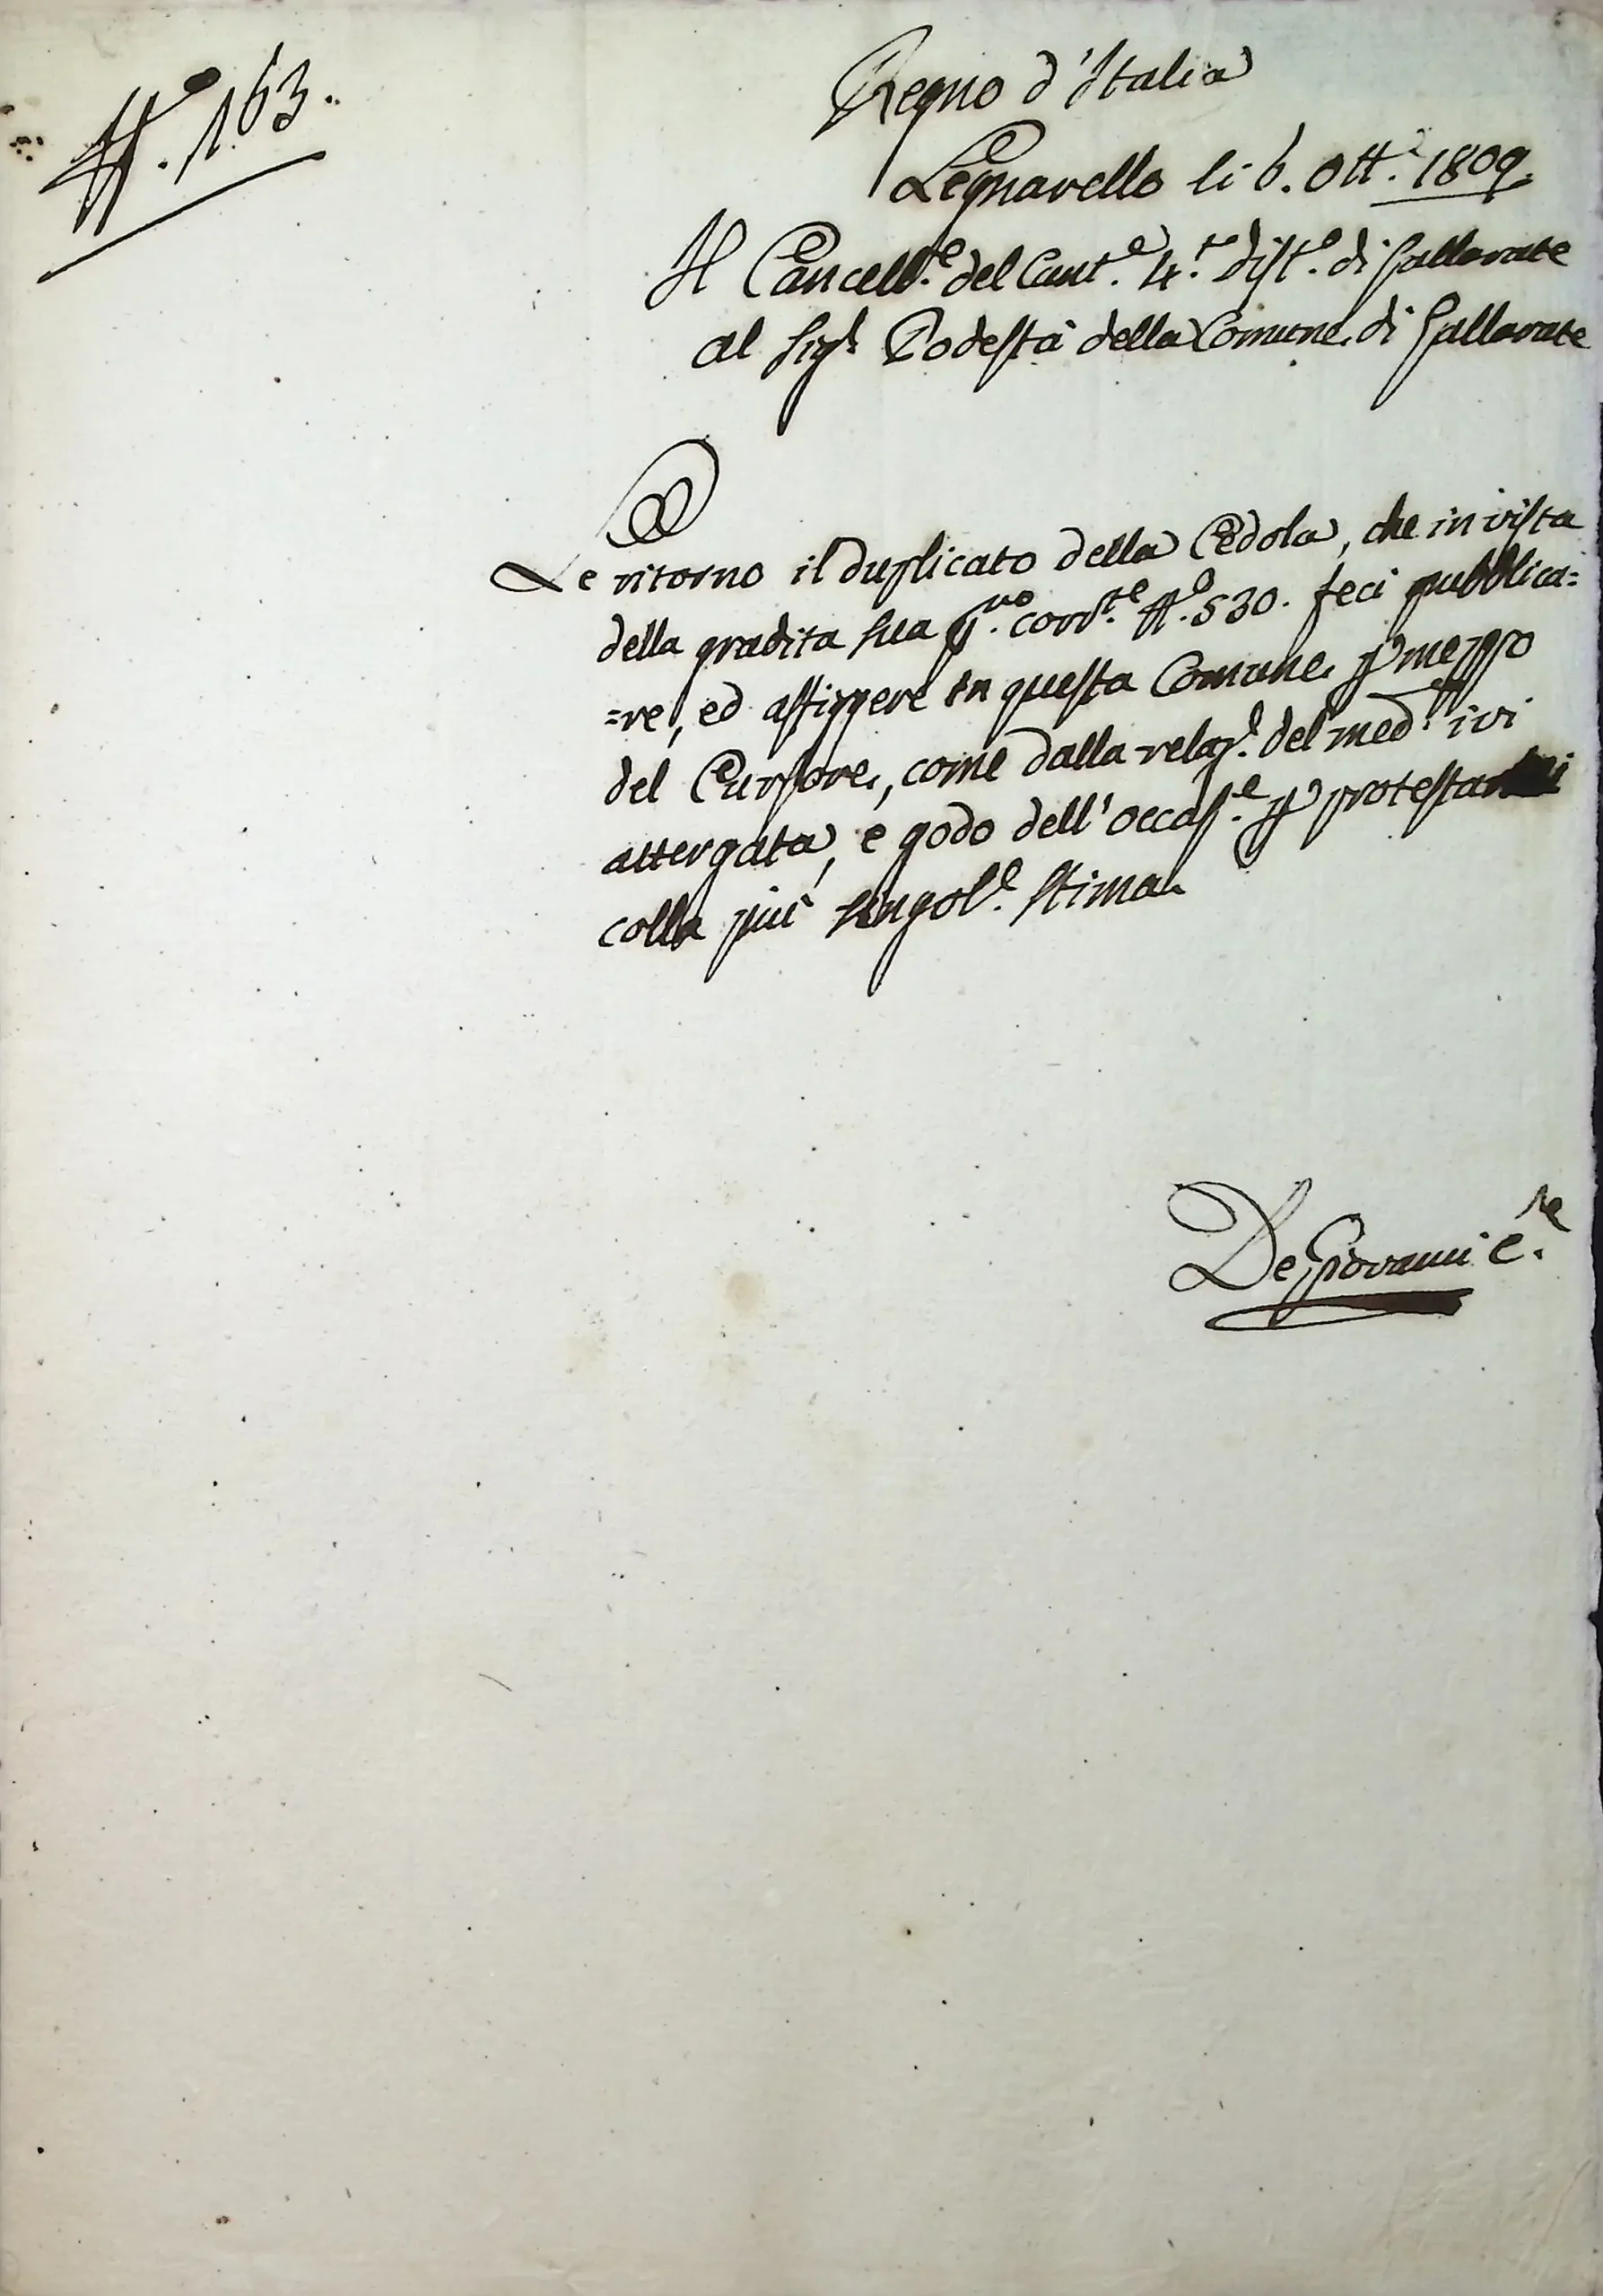 N.º 163.
Regno d'Italia
Legnarello li 6. Ott.e 1809.
Il Cancell.e del Cant.e 4.to Dist.o di Gallarate
al Sig.r Podestà della Comune di Gallarate
Le ritorno il duplicato della Cedola, che in vista
della gradita sua p.mo corr.te N.º 530. feci pubblica=
=re, ed affiggere in questa Comune p mezzo
del Cursore, come dalla relaz.e del med.o ivi
attergata, e godo dell'occas.e p protestarmi
colla più singol.e stima
De Giovanni C.re